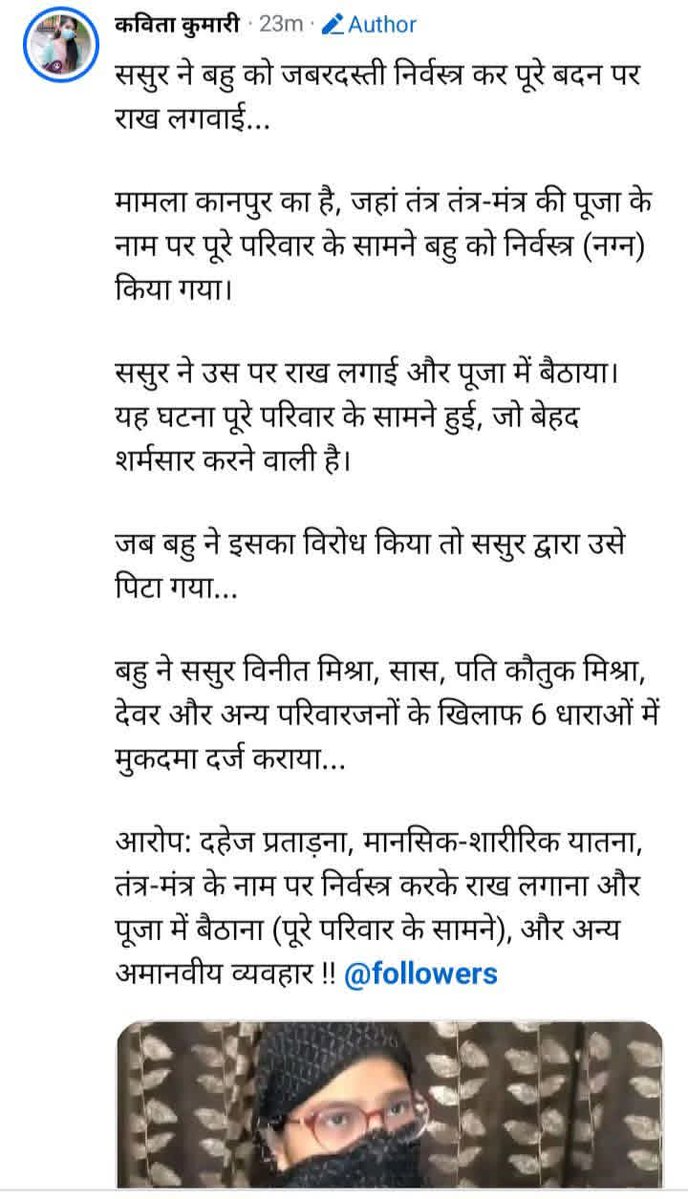 कविता कुमारी · 23m · Author
ससुर ने बहु को जबरदस्ती निर्वस्त्र कर पूरे बदन पर
राख लगवाई...
मामला कानपुर का है, जहां तंत्र तंत्र-मंत्र की पूजा के
नाम पर पूरे परिवार के सामने बहु को निर्वस्त्र (नग्न)
किया गया।
ससुर ने उस पर राख लगाई और पूजा में बैठाया।
यह घटना पूरे परिवार के सामने हुई, जो बेहद
शर्मसार करने वाली है।
जब बहु ने इसका विरोध किया तो ससुर द्वारा उसे
पिटा गया...
बहु ने ससुर विनीत मिश्रा, सास, पति कौतुक मिश्रा,
देवर और अन्य परिवारजनों के खिलाफ 6 धाराओं में
मुकदमा दर्ज कराया...
आरोप: दहेज प्रताड़ना, मानसिक-शारीरिक यातना,
तंत्र-मंत्र के नाम पर निर्वस्त्र करके राख लगाना और
पूजा में बैठाना (पूरे परिवार के सामने), और अन्य
अमानवीय व्यवहार !! @followers